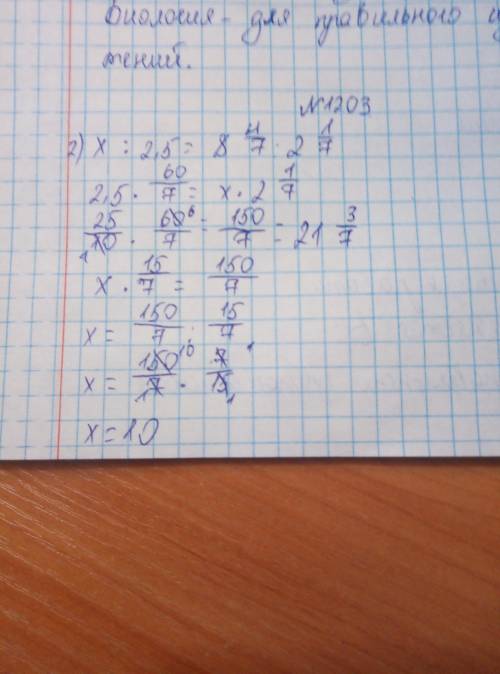 Биология - для правильного
тений.
№1203
2) x : 2,5 = 8 4/7 : 2 1/7
2,5 · 60/7 = x · 2 1/7
25/10 · 60/7 = 150/7 = 21 3/7
x · 15/7 = 150/7
x = 150/7 : 15/7
x = 150/7 · 7/15
x = 10